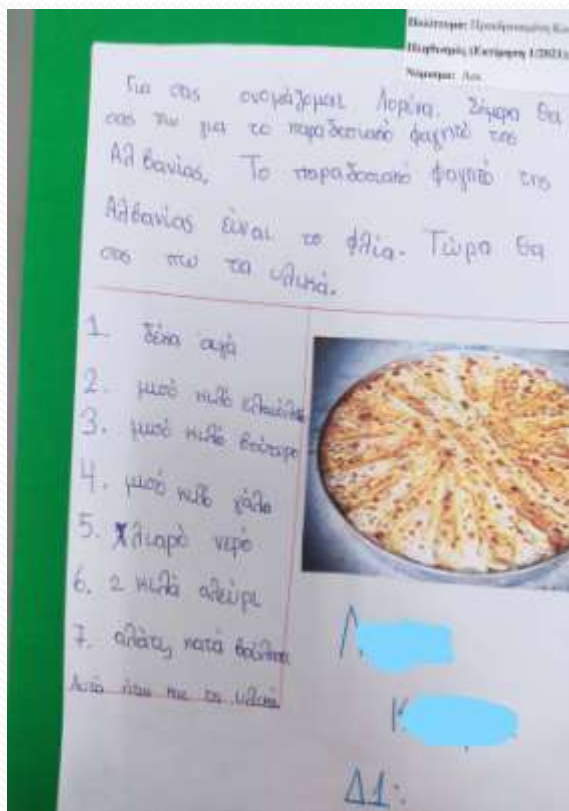 Πολίτευμα: Προεδρευομένη Κοι
Πληθυσμός (Εκτίμηση 1/2021):
Νόμισμα: Λεκ
Γεια σας ονομάζομαι Λορένα. Σήμερα θα
σας πω για το παραδοσιακό φαγητό της
Αλβανίας. Το παραδοσιακό φαγητό της
Αλβανίας είναι το φλία. Τώρα θα
σας πω τα υλικά.
1. δέκα αυγά
2. μισό κιλό ελαιόλαδο
3. μισό κιλό βούτυρο
4. μισό κιλό γάλα
5. χλιαρό νερό
6. 2 κιλά αλεύρι
7. αλάτι, κατά βούληση
Αυτά ήταν τα υλικά
Λ
Κ
Δ1: